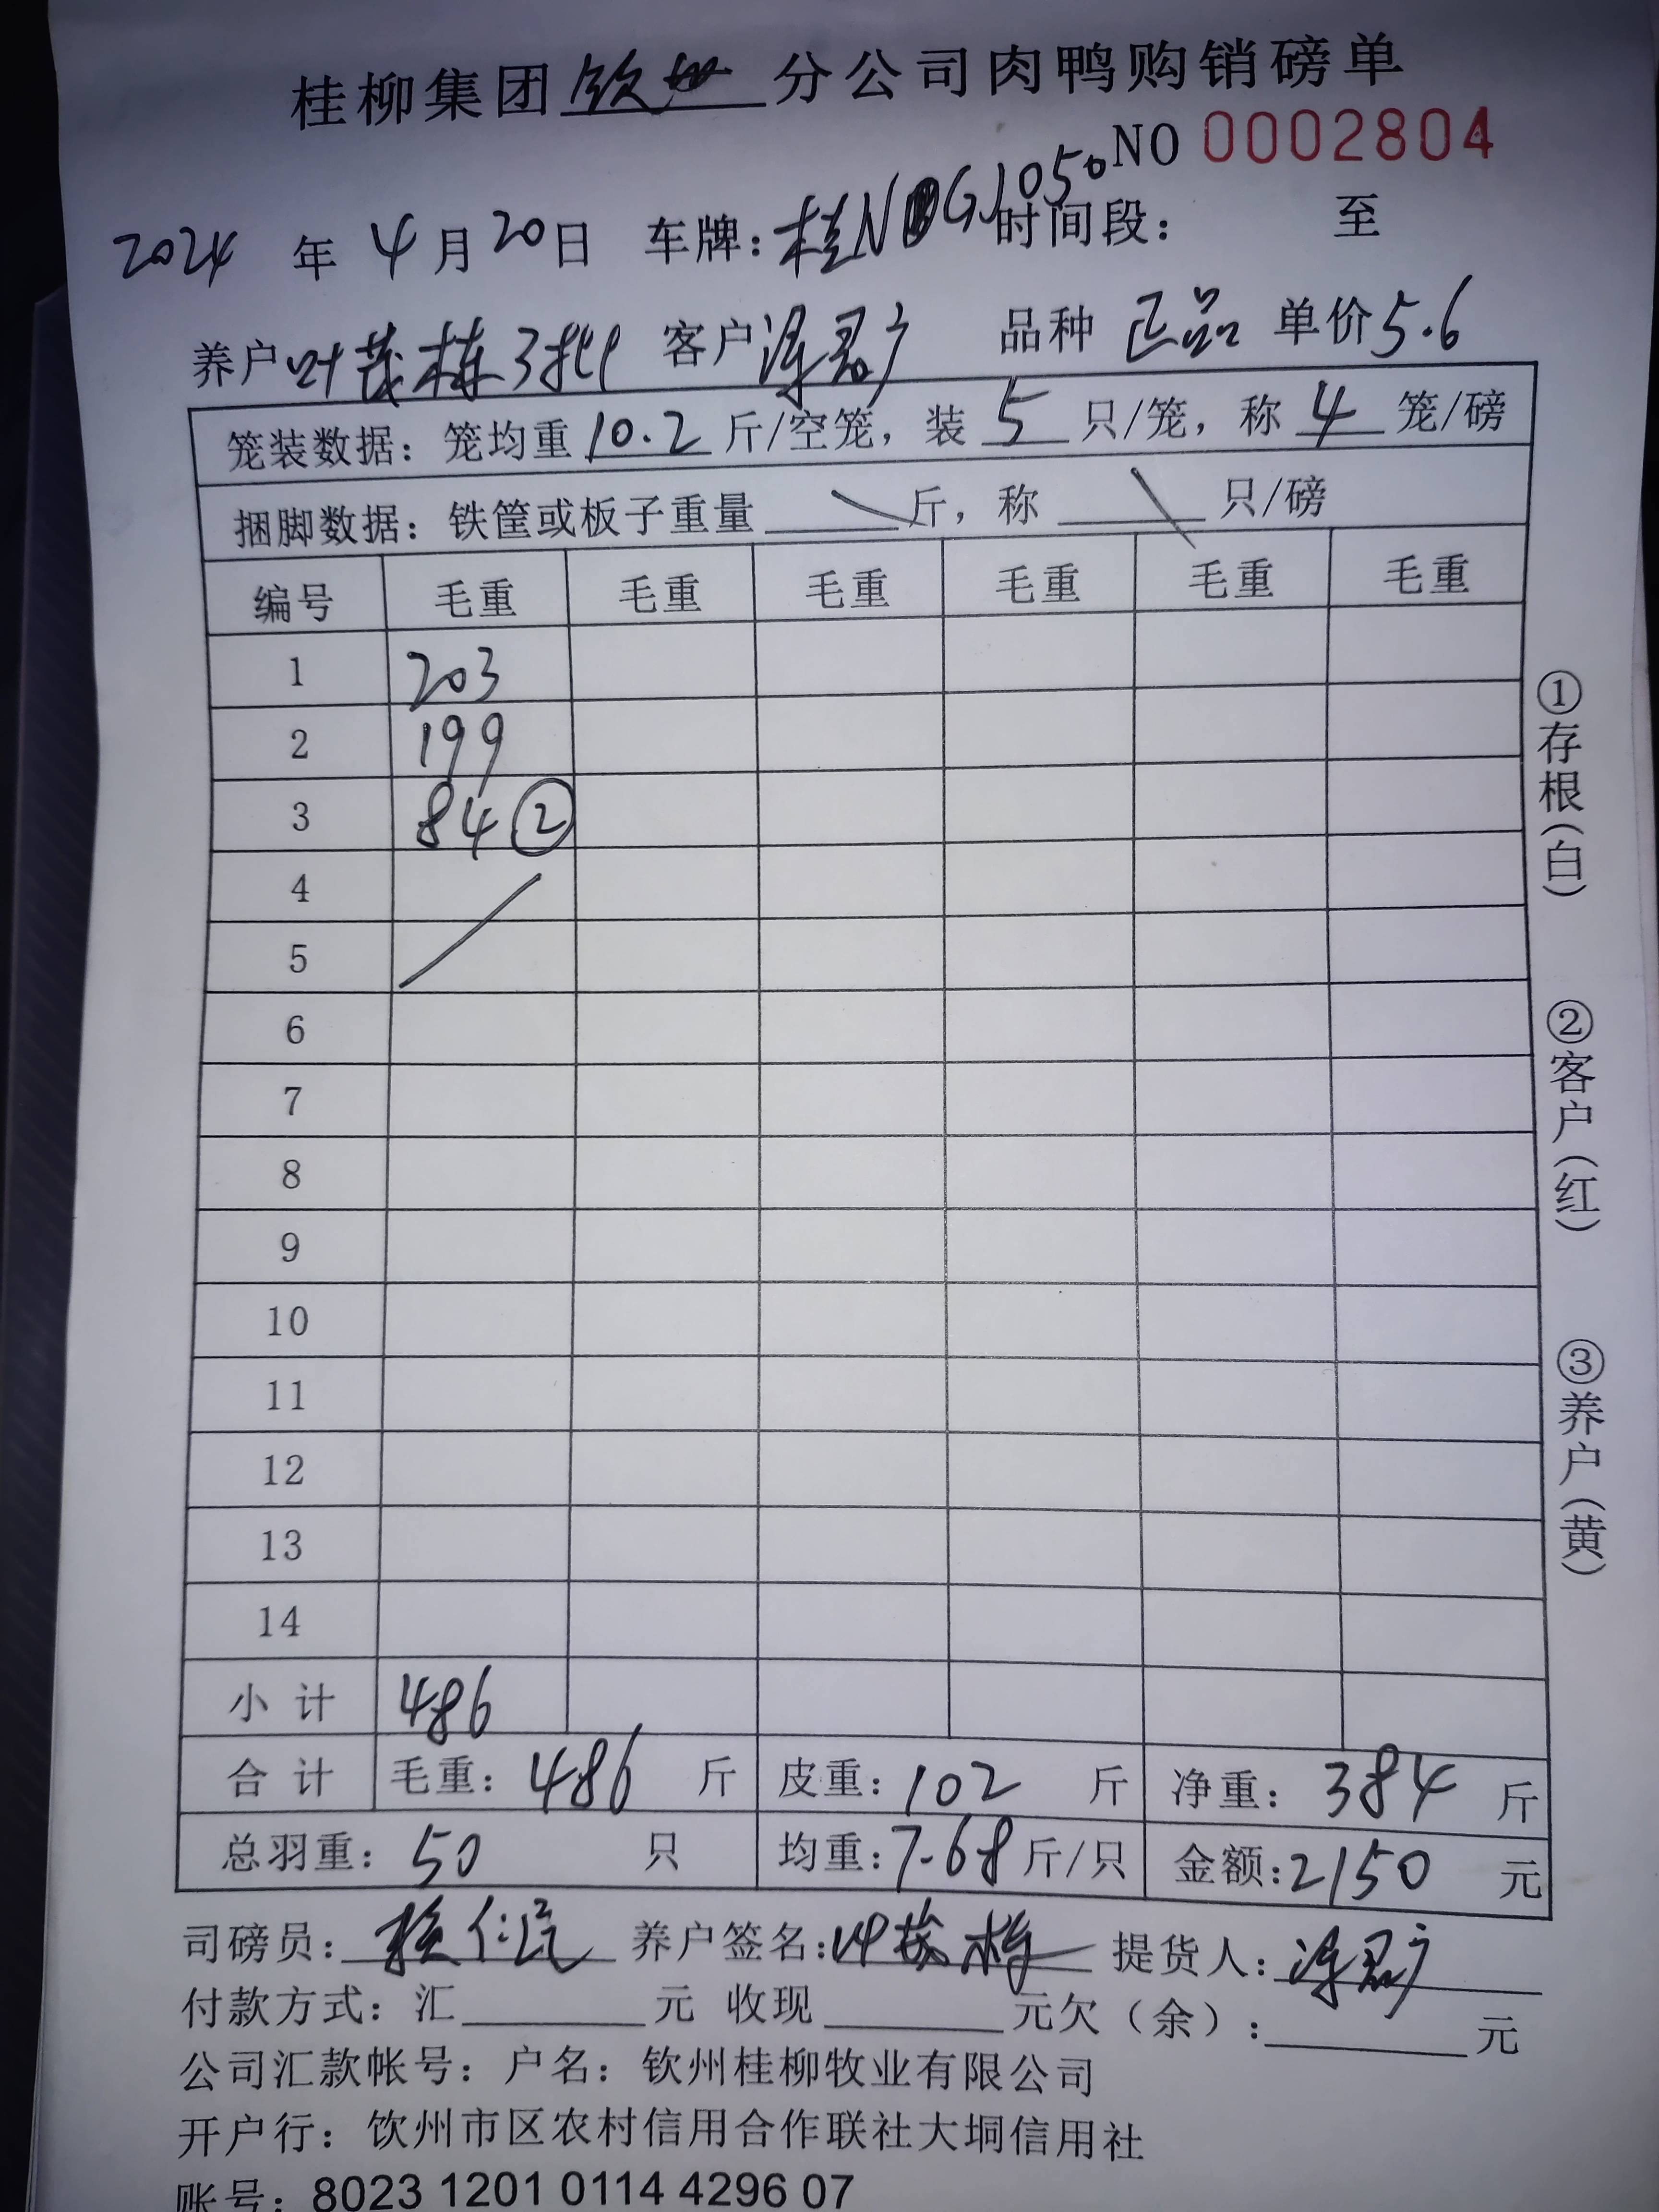 桂柳集团钦州分公司肉鸭购销磅单
NO 0002804
2024 年 4 月 20 日 车牌:桂N G1050 时间段: 至
养户 叶茂栋3批 客户 品种 正品 单价 5.6
笼装数据: 笼均重 10.2 斤/空笼, 装 5 只/笼, 称 4 笼/磅
捆脚数据: 铁筐或板子重量 斤, 称 只/磅
编号 毛重 毛重 毛重 毛重 毛重 毛重
1 203
2 199
3 84 ②
4
5
6
7
8
9
10
11
12
13
14
小 计 486
合 计 毛重: 486 斤 皮重: 102 斤 净重: 384 斤
总羽重: 50 只 均重: 7.68 斤/只 金额: 2150 元
司磅员: 养户签名: 叶茂栋 提货人:
付款方式: 汇 元 收现 元欠(余): 元
公司汇款帐号: 户名: 钦州桂柳牧业有限公司
开户行: 钦州市区农村信用合作联社大垌信用社
账号: 8023 1201 0114 4296 07
①存根(白)
②客户(红)
③养户(黄)